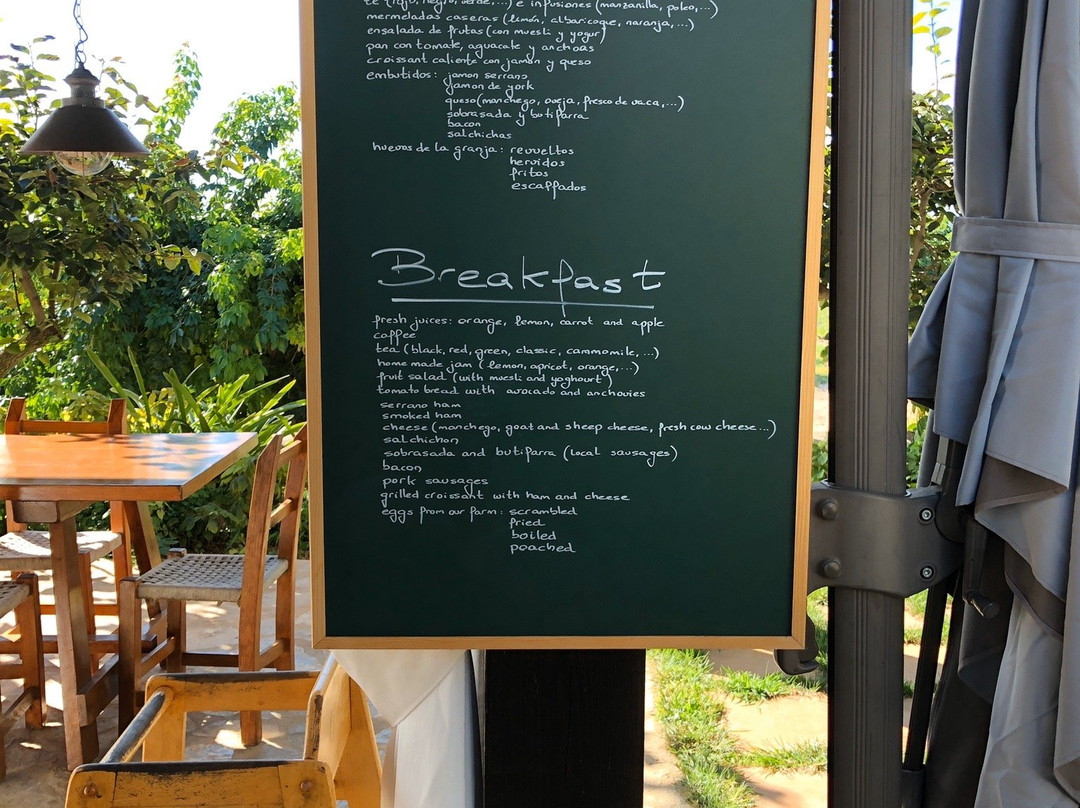 té (rojo, negro, verde,...) e infusiones (manzanilla, poleo,...)
mermeladas caseras (limón, albaricoque, naranja,...)
ensalada de frutas (con muesli y yogur)
pan con tomate, aguacate y anchoas
croissant caliente con jamón y queso
embutidos: jamon serrano
jamon de york
queso (manchego, oveja, fresco de vaca,...)
sobrasada y butifarra
bacon
salchichas
huevos de la granja: revueltos
hervidos
fritos
escalfados
Breakfast
fresh juices: orange, lemon, carrot and apple
coffee
tea (black, red, green, classic, cammomile,...)
home made jam (lemon, apricot, orange,...)
fruit salad (with muesli and yoghourt)
tomato bread with avocado and anchovies
serrano ham
smoked ham
cheese (manchego, goat and sheep cheese, fresh cow cheese...)
salchichon
sobrasada and butifarra (local sausages)
bacon
pork sausages
grilled croissant with ham and cheese
eggs from our farm: scrambled
fried
boiled
poached